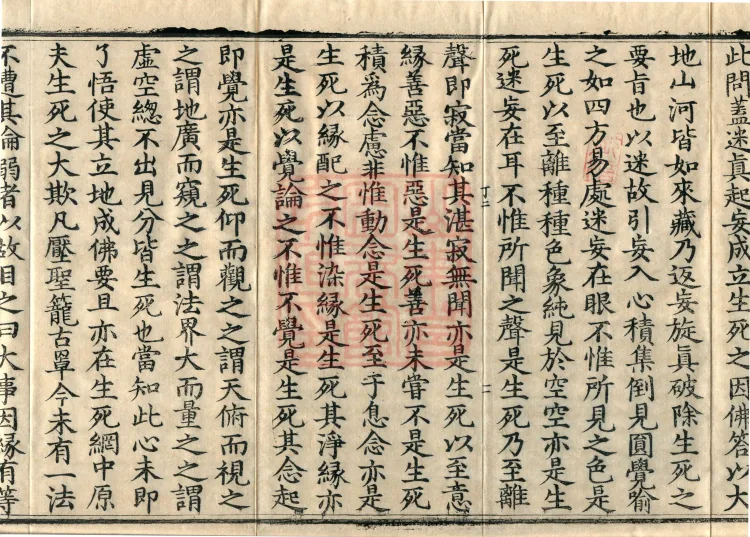 此問蓋迷眞起妄成立生死之因佛答以大
地山河皆如來藏乃返妄旋眞破除生死之
要旨也以迷故引妄入心積集倒見圓覺喻
之如四方易處迷妄在眼不惟所見之色是
生死以至離種種色象純見於空空亦是生
死迷妄在耳不惟所聞之聲是生死乃至離
聲即寂當知其湛寂無聞亦是生死以至意
緣善惡不惟惡是生死善亦未甞不是生死
積爲念慮非惟動念是生死至于息念亦是
生死以緣配之不惟染緣是生死其淨緣亦
是生死以覺論之不惟不覺是生死其念起
即覺亦是生死仰而觀之之謂天俯而視之
之謂地廣而窺之之謂法界大而量之之謂
虛空緫不出見分皆生死也當知此心未即
了悟使其立地成佛要且亦在生死網中原
夫生死之大欺凡壓聖籠古罩今未有一法
不遭其淪溺者以故目之曰大事因緣有等